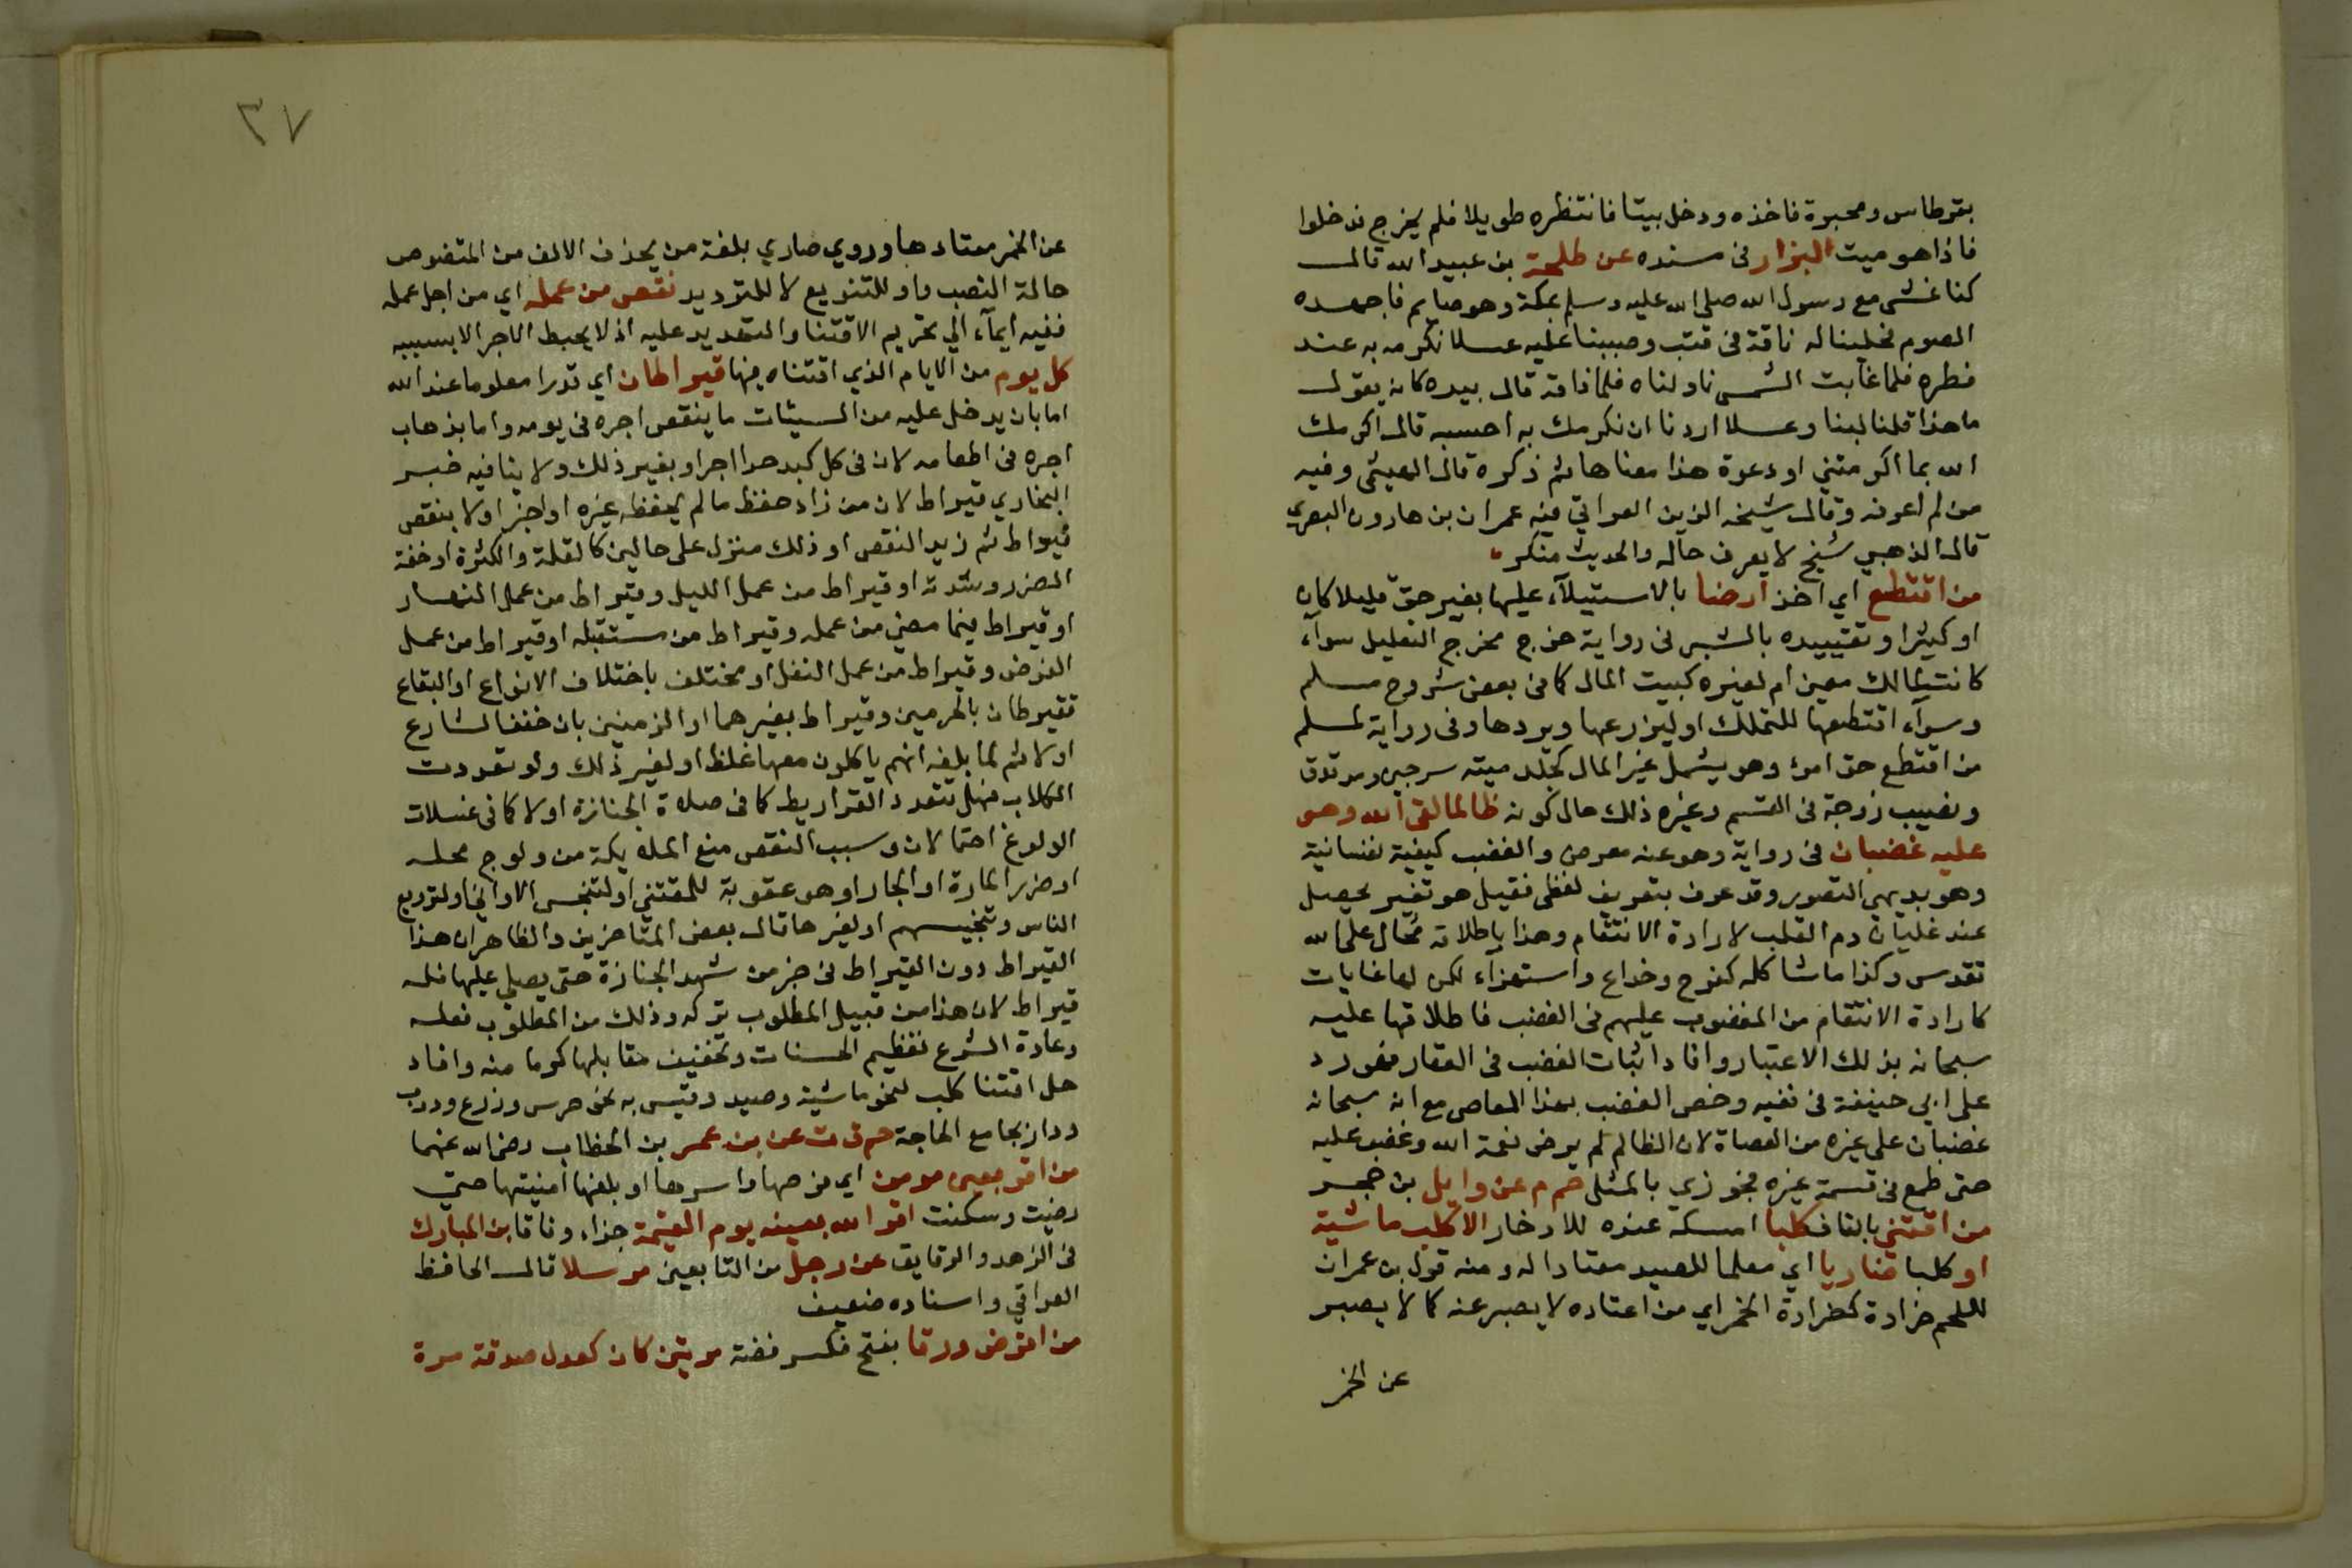 بقرطاس ومحبرة فاخذه ودخل بيتا فانتظره طويلا فلم يخرج فدخلوا
فاذا هو ميت البزار فى مسنده عن طلحة بن عبيد الله قال
كنا نمشى مع رسول الله صلى الله عليه وسلم بمكة وهو صايم فاجهده
الصوم فحلبنا له ناقة فى قعب وصببنا عليه عسلا نكرمه به عند
فطره فلما غابت الشمس ناولناه فلما ذاقه قال بيده كانه يقول
ما هذا قلنا لبنا وعسلا اردنا ان نكرمك به احسبه قال اكرمك
الله بما اكرمتني او دعوة هذا معناها ثم ذكره قال الهيثمى وفيه
من لم اعرفه وقال شيخه الزين العراقي فيه عمران بن هارون البصري
قال الذهبي شيخ لا يعرف حاله والحديث منكر
من اقتطع اي اخذ ارضا بالاستيلآء عليها بغير حق قليلا كان
او كثيرا وتقييده بالشبر فى رواية خرج مخرج التقليل سوآء
كانت لمالك معين ام لغيره كبيت المال كما فى بعض شروح مسلم
وسوآء اقتطعها للتملك او ليزرعها ويردها وفى رواية لمسلم
من اقتطع حق امرئ وهو يشمل غير المال كجلد ميته سرجين وحد قذف
ونصيب زوجة فى القسم وغيره ذلك حال كونه ظالما لقى الله وهو
عليه غضبان فى رواية وهو عنه معرض والغضب كيفية نفسانية
وهو بديهى التصور وقد عرف بتعريف لفظى فقيل هو تغير يحصل
عند غليان دم القلب لارادة الانتقام وهذا باطلاقه مُحال على الله
تقدس وكذا ما شاكله كفرح وخداع واستهزاء لكن لها غايات
كارادة الانتقام من المغضوب عليهم فى الغضب فاطلاقها عليه
سبحانه بذلك الاعتبار وافاد اثبات الغصب فى العقار فهو رد
على ابي حنيفة فى نفيه وخص الغضب بهذا المعاصى مع انه سبحانه
غضبان على غيره من العصاة لان الظالم لم يرض نعمة الله وغضب عليه
حتى طمع فى قسمة غيره فجوزي بالمثل حم م عن وايل بن حجر
من اقتنى بالقاف كلبا امسكه عنده للادخار الا كلب ماشية
او كلبا ضاريا اي معلما للصيد معتادا له ومنه قول بن عمران
للحم ضرادة كضرادة الخمر اي من اعتاده لا يصبر عنه كما لا يصبر
عن الخمر
٣٧
عن الخمر معتادها وروي ضاري بلغة من يحذف الالف من المنقوص
حالة النصب واو للتنويع لا للترديد نقص من عمله اي من اجل عمله
ففيه ايمآء الي تحريم الاقتنا والتهديد عليه اذ لا يحبط الاجر الا بسببه
كل يوم من الايام الذي اقتناه فيها قيراطان اي قدرا معلوما عند الله
اما بان يدخل عليه من السيئات ما ينقص اجره فى يومه واما بذهاب
اجره فى اطعامه لان فى كل كبد حرا اجرا وبغير ذلك ولا ينافيه خبر
البخاري قيراط لان من زاد حفظ مالم يحفظه غيره او اخبر اولا بنقص
قيراط ثم زيد النقص او ذلك منزل على حالين كالقلة والكثرة او خفة
الضرر وشدته او قيراط من عمل الليل وقيراط من عمل النهار
او قيراط فيما مضى من عمله وقيراط من مستقبله او قيراط من عمل
الفرض وقيراط من عمل النفل او مختلف باختلاف الانواع او البقاع
فقيراطان بالحرمين وقيراط بغيرهما او الزمنين بان خفف الشارع
اولا ثم لما بلغه انهم ياكلون معها غلظ او لغير ذلك ولو تعددت
الكلاب فهل تتعدد القراريط كما فى صلاة الجنازة او لا كما فى غسلات
الولوغ احتمالان وسبب النقص منع الملايكة من ولوج محله
او ضرر المارة او الجار او هو عقوبة للمقتني او لتنجس الاواني او لترويع
الناس وتنجيسهم او لغيرها قال بعض المتاخرين والظاهر ان هذا
القيراط دون القيراط فى خبر من شهد الجنازة حتى يصلي عليها فله
قيراط لان هذا من قبيل المطلوب تركه وذلك من المطلوب فعله
وعادة الشرع تعظيم الحسنات وتخفيف مقابلها كرما منه وافاد
حل اقتنا كلب لنحو ماشية وصيد وقيس به نحو حرس وزرع ودرب
ودار بجامع الحاجة حم ق ت عن بن عمر بن الخطاب رضى الله عنهما
من اقر بعين مومن اي فرحها واسرها او بلغها امنيتها حتى
رضيت وسكنت اقر الله بعينه يوم القيمة جزاء وفاقا بن المبارك
فى الزهد والرقايق عن رجل من التابعين مرسلا قال الحافظ
العراقي واسناده ضعيف
من اقرض ورقا بفتح فكسر فضة مرتين كان كعدل صدقة مرة